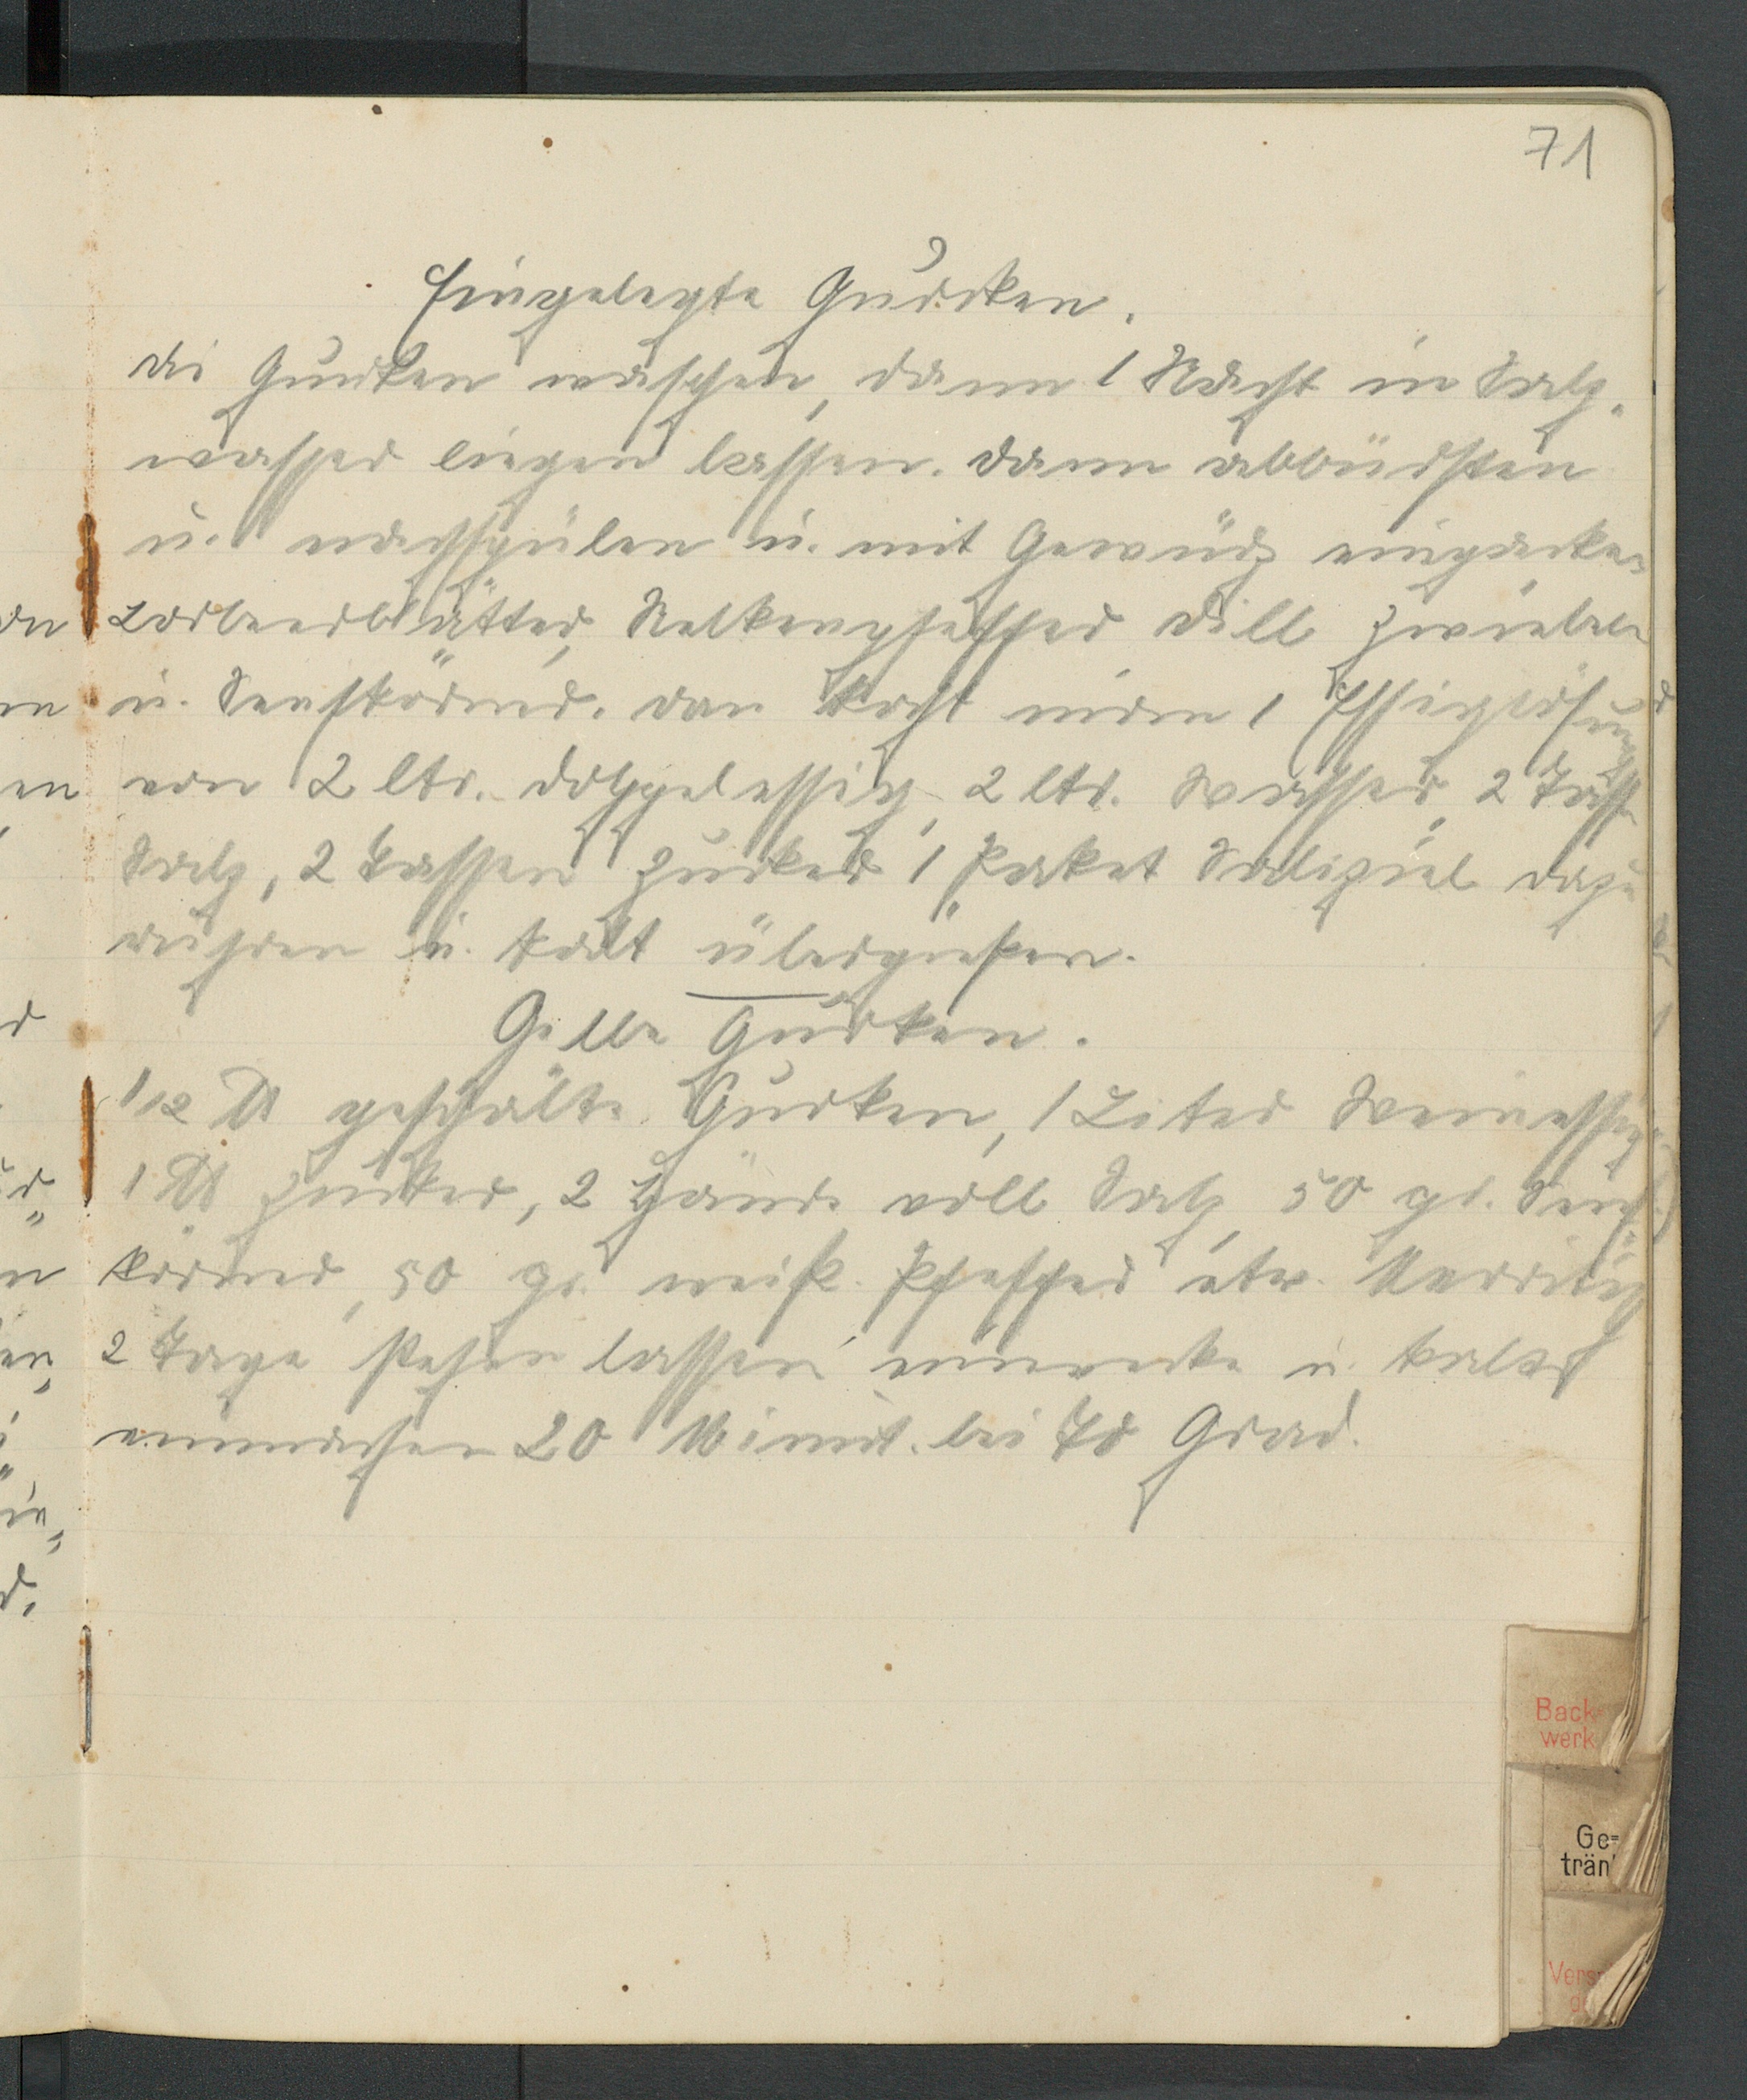 71
Eingelegte Gurken.
die Gurken waschen, dann 1 Nacht in Salz-
wasser liegen lassen. dann abbürsten
u. nachspülen u. mit Gewürz einpacken
Lorbeerblätter, Nelkenpfeffer Dill Zwiebeln
u. Senfkörner. dan kocht man 1 Essiglösung
von 2 ltr. Doppelessig, 2 ltr. Wasser, 2 Tass.
Salz, 2 Tassen Zucker 1 Paket Saliziel dazu
rühren u. kalt übergießen.
Gelbe Gurken.
1/2 ℔ geschälte Gurken, 1 Liter Weinessig
1 ℔ Zucker, 2 Hände voll Salz, 50 gr. Senf-
körner, 50 gr. weiß. Pfeffer etw. Merretig
2 Tage stehen lassen u.
einmachen 20 Minut. bei 70 Grad.
Back-
werk
Ge=
trän
Vers